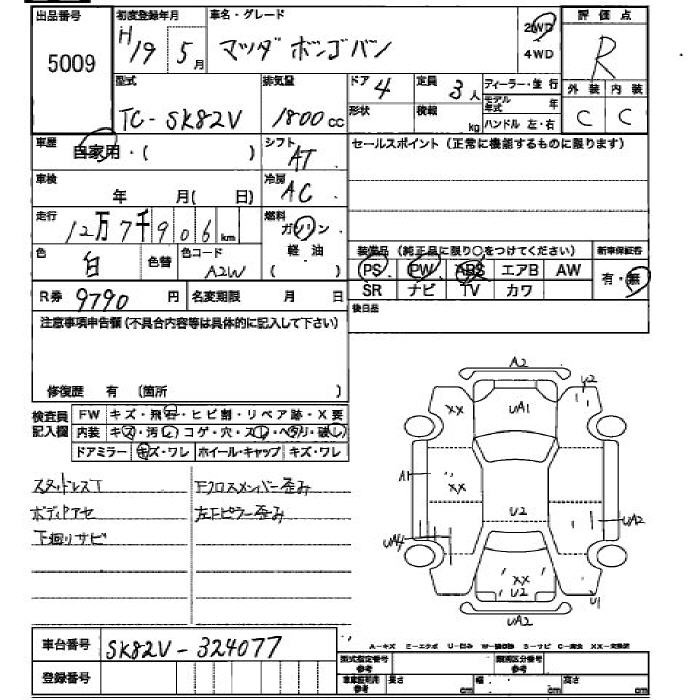 出品番号 5009
初度登録年月 H19 5月
車名・グレード マツダ ボンゴバン
2WD
4WD
評価点 R
外装 内装
C C
型式 TC-SK82V
排気量 1800cc
ドア 4
定員 3人
形状
積載 kg
ディーラー・並行
モデル年式 年
ハンドル 左・右
車歴 自家用・( )
シフト AT
セールスポイント(正常に機能するものに限ります)
車検 年 月( 日)
冷房 AC
走行 12万7千906km
燃料 ガソリン
軽油
( )
色 白
色替
色コード A2W
装備品(純正品に限り○をつけてください)
新車保証書
PS PW ABS エアB AW
有・無
SR ナビ TV カワ
R券 9790円
名変期限 月 日
後日品
注意事項申告欄(不具合内容等は具体的に記入して下さい)
修復歴 有 (箇所 )
検査員記入欄
FW キズ・飛石・ヒビ割・リペア跡・X要
内装 キズ・汚れ・コゲ・穴・スレ・ヘタリ・破れ
ドアミラー キズ・ワレ ホイール・キャップ キズ・ワレ
スタッドレスT
ボディPアセ
下廻りサビ
Fクロスメンバー歪み
左Fピラー歪み
A2
XX
UA1
A1
XX
U2
UA2
UA4
XX
U2
U1
UA2
A-キズ E-エクボ U-凹み S-サビ C-腐食 XX-交換済
車台番号 SK82V-324077
登録番号
型式指定番号 参考
類別区分番号 参考
車庫証明用 参考
長さ cm
幅 cm
高さ cm